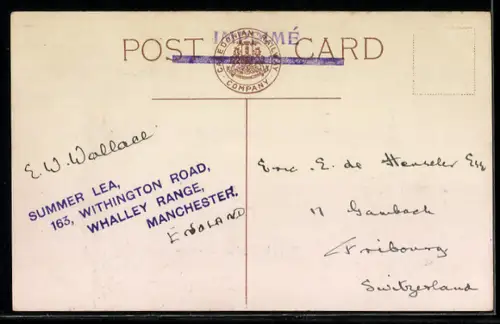 IMPRIMÉ
POST CARD
CALEDONIAN RAILWAY
COMPANY
E. W. Wallace
SUMMER LEA,
163, WITHINGTON ROAD,
WHALLEY RANGE,
MANCHESTER.
ENGLAND
Eric. E. de Esq
17 Gambach
Fribourg
Switzerland